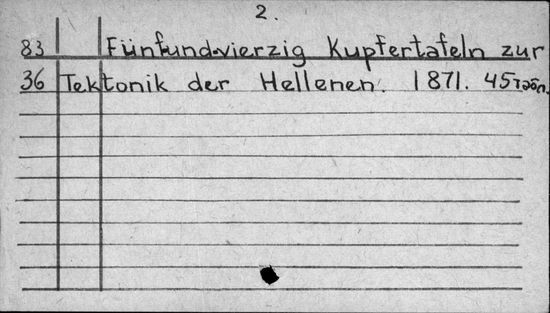 2.
83 Fünfundvierzig Kupfertafeln zur
36 Tektonik der Hellenen. 1871. 45